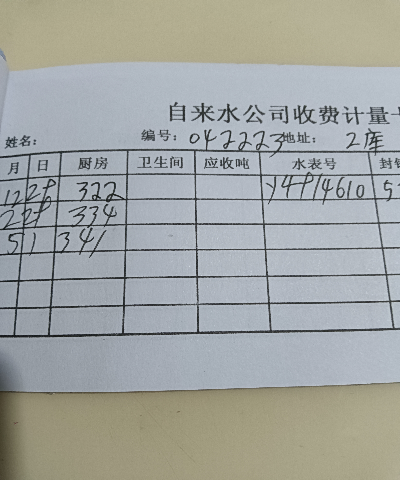 自来水公司收费计量
姓名: 编号: 042223 地址: 2库
月 日 厨房 卫生间 应收吨 水表号 封
12 28 322
2 28 334
5 1 341